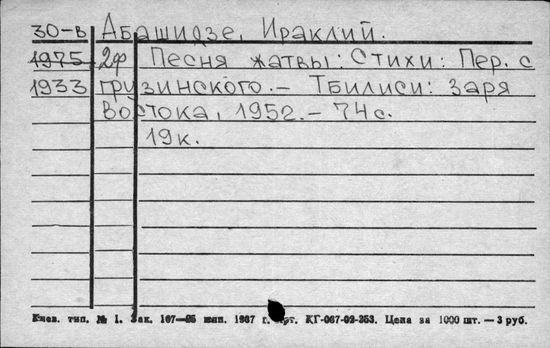 30-в Абашидзе, Ираклий.
1975 2ф Песня жатвы: Стихи: Пер. с
1933 грузинского. — Тбилиси: Заря
Востока, 1952. — 74 с.
19 к.
Киев. тип. № 1. Зак. 107—25 1967 г. КГ-067-02-253. Цена за 1000 шт. — 3 руб.